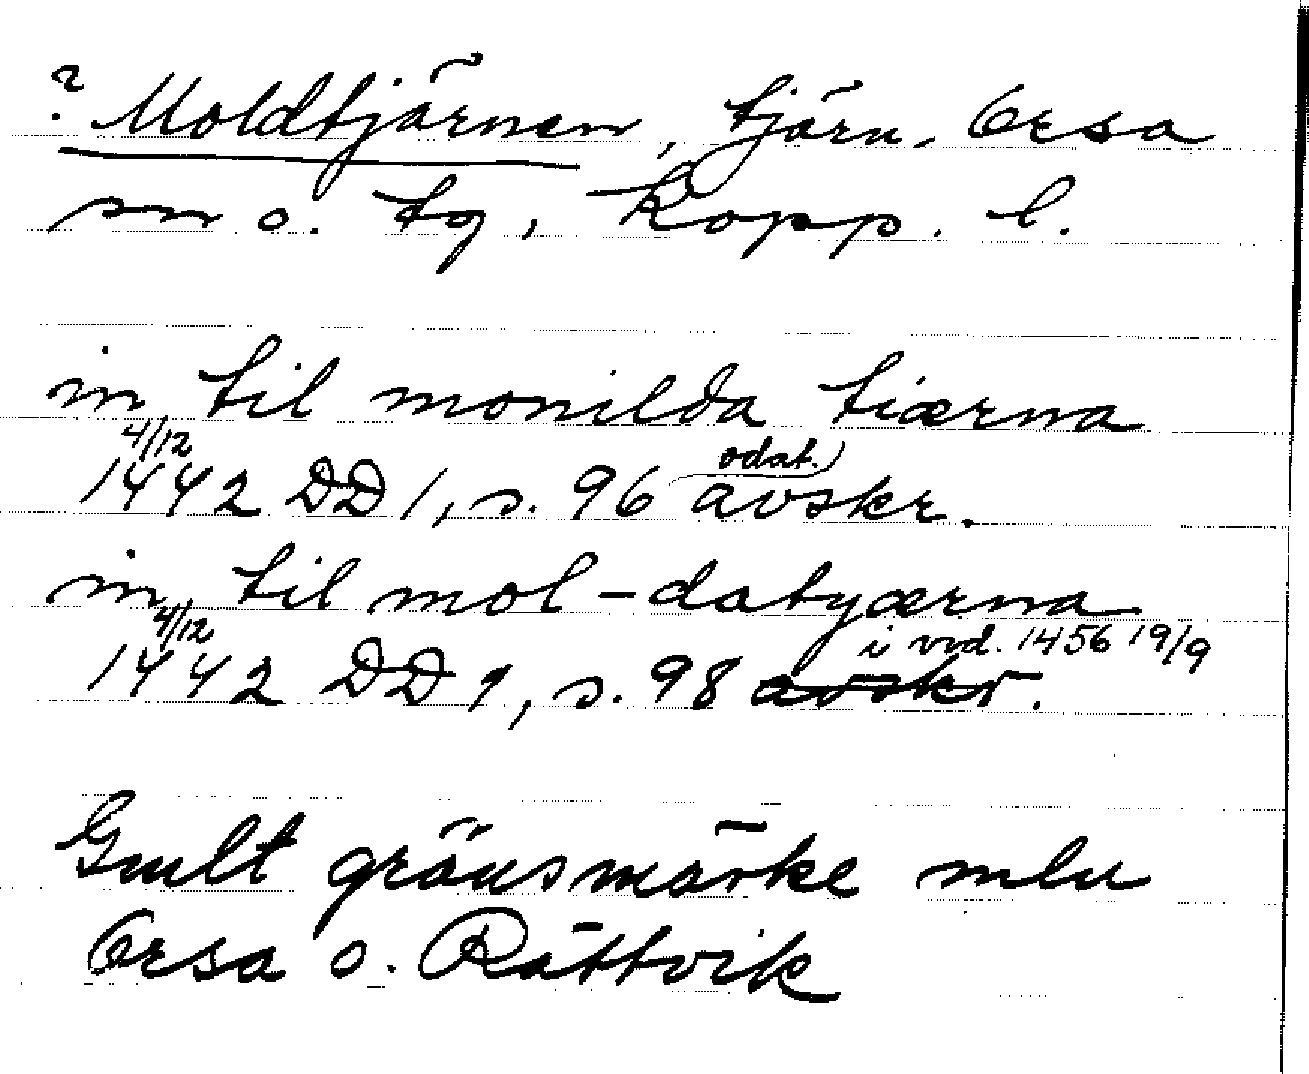 ? Moldtjärnen, tjärn, Orsa
sn o. tg, Kopp. l.
in til monilda tiærna
4/12
odat.
1442 DD 1, s. 96 avskr.
in til mol-datyærna
4/12
i vid. 1456 19/9
1442 DD 1, s. 98 avskr.
Gmlt gränsmärke mln
Orsa o. Rättvik